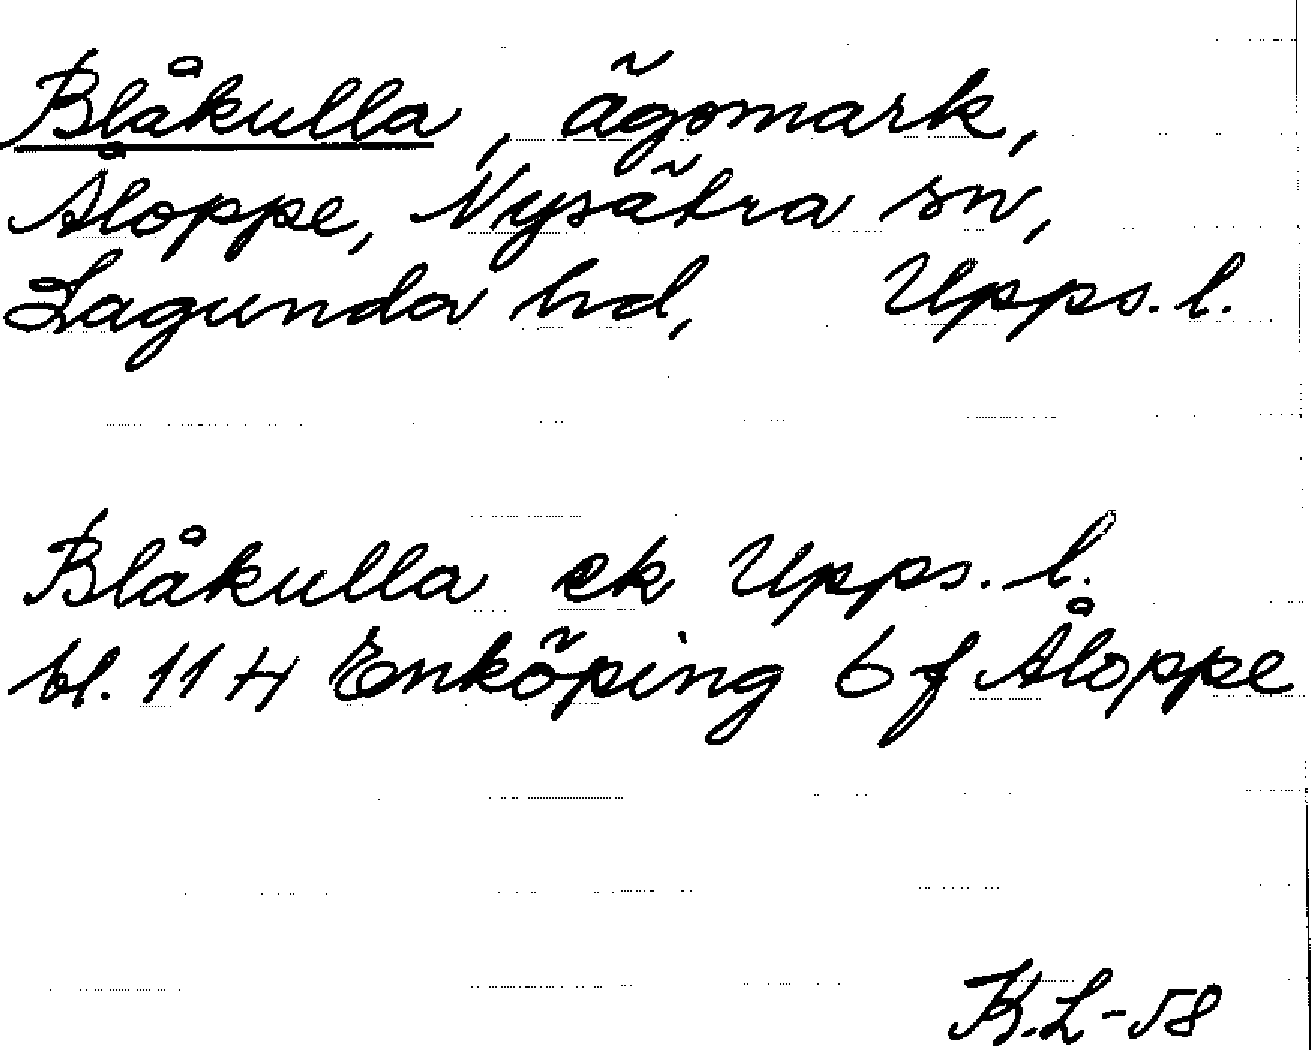 Blåkulla, ägomark,
Åloppe, Nysätra sn,
Lagunda hd, Upps. l.
Blåkulla ek Upps. l.
bl. 114 Enköping 6 f Åloppe
K.L-58